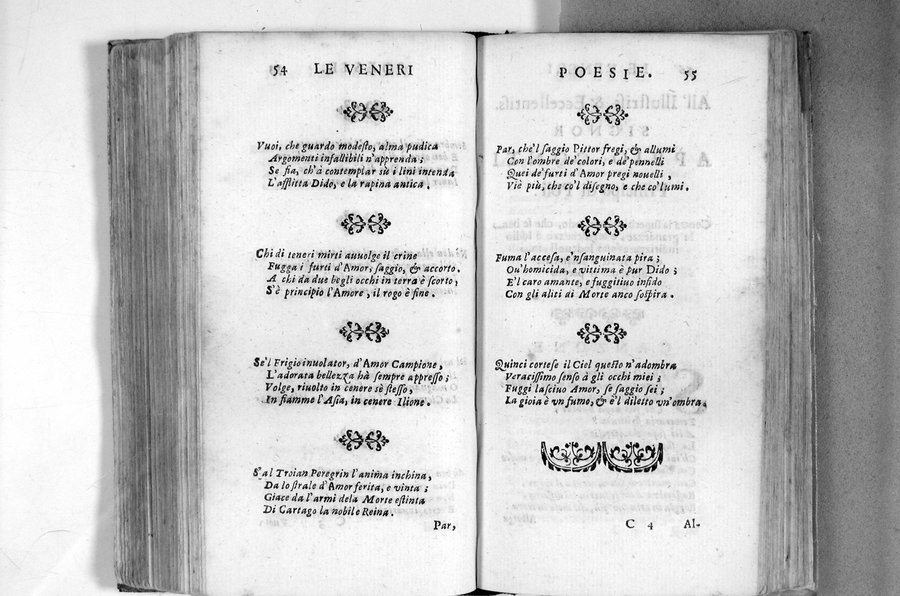 54 LE VENERI
Vuoi, che guardo modeſto, alma pudica
Argomenti infallibili n'apprenda;
Se fia, ch'à contemplar sù i lini intenda
L'afflitta Dido, e la rapina antica.
Chi di teneri mirti auuolge il crine
Fugga i furti d'Amor, ſaggio, & accorto.
A chi da due begli occhi in terra è ſcorto,
S'è principio l'Amore, il rogo è fine.
Se'l Frigio inuolator, d'Amor Campione,
L'adorata bellezza hà ſempre appreſſo;
Volge, riuolto in cenere sè ſteſſo,
In fiamme l'Aſia, in cenere Ilione.
S'al Troian Peregrin l'anima inchina,
Da lo ſtrale d'Amor ferita, e vinta;
Giace da l'armi dela Morte eſtinta
Di Cartago la nobile Reina.
Par,
POESIE. 55
Par, che'l ſaggio Pittor fregi, & allumi
Con l'ombre de'colori, e de'pennelli
Quei de'furti d'Amor pregi nouelli,
Viè più, che co'l diſegno, e che co'lumi.
Fuma l'acceſa, e'nſanguinata pira;
Ou'homicida, e vittima è pur Dido;
E'l caro amante, e fuggitiuo infido
Con gli aliti di Morte anco ſoſpira.
Quinci corteſe il Ciel queſto n'adombra
Veraciſſimo ſenſo à gli occhi miei;
Fuggi laſciuo Amor, ſe ſaggio ſei;
La gioia è vn fumo, & è'l diletto vn'ombra.
C 4 Al-